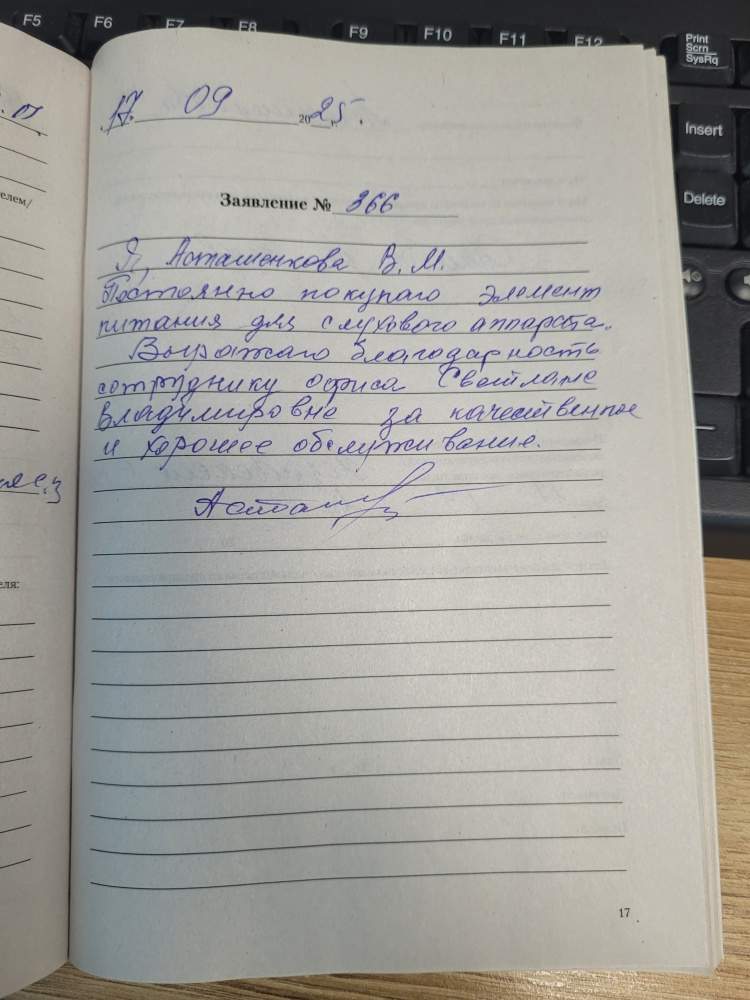 F5 F6 F7 F8 F9 F10 F11 F12
Print
Scrn
SysRq
Insert
Delete
17. 09 2025 г.
Заявление № 366
Я, Асташенкова В. М.
Постоянно покупаю элемент
питания для слухового аппарата.
Выражаю благодарность
сотруднику офиса Светлане
Владимировне за качественное
и хорошее обслуживание.
Асташ
17
елем/
еля: